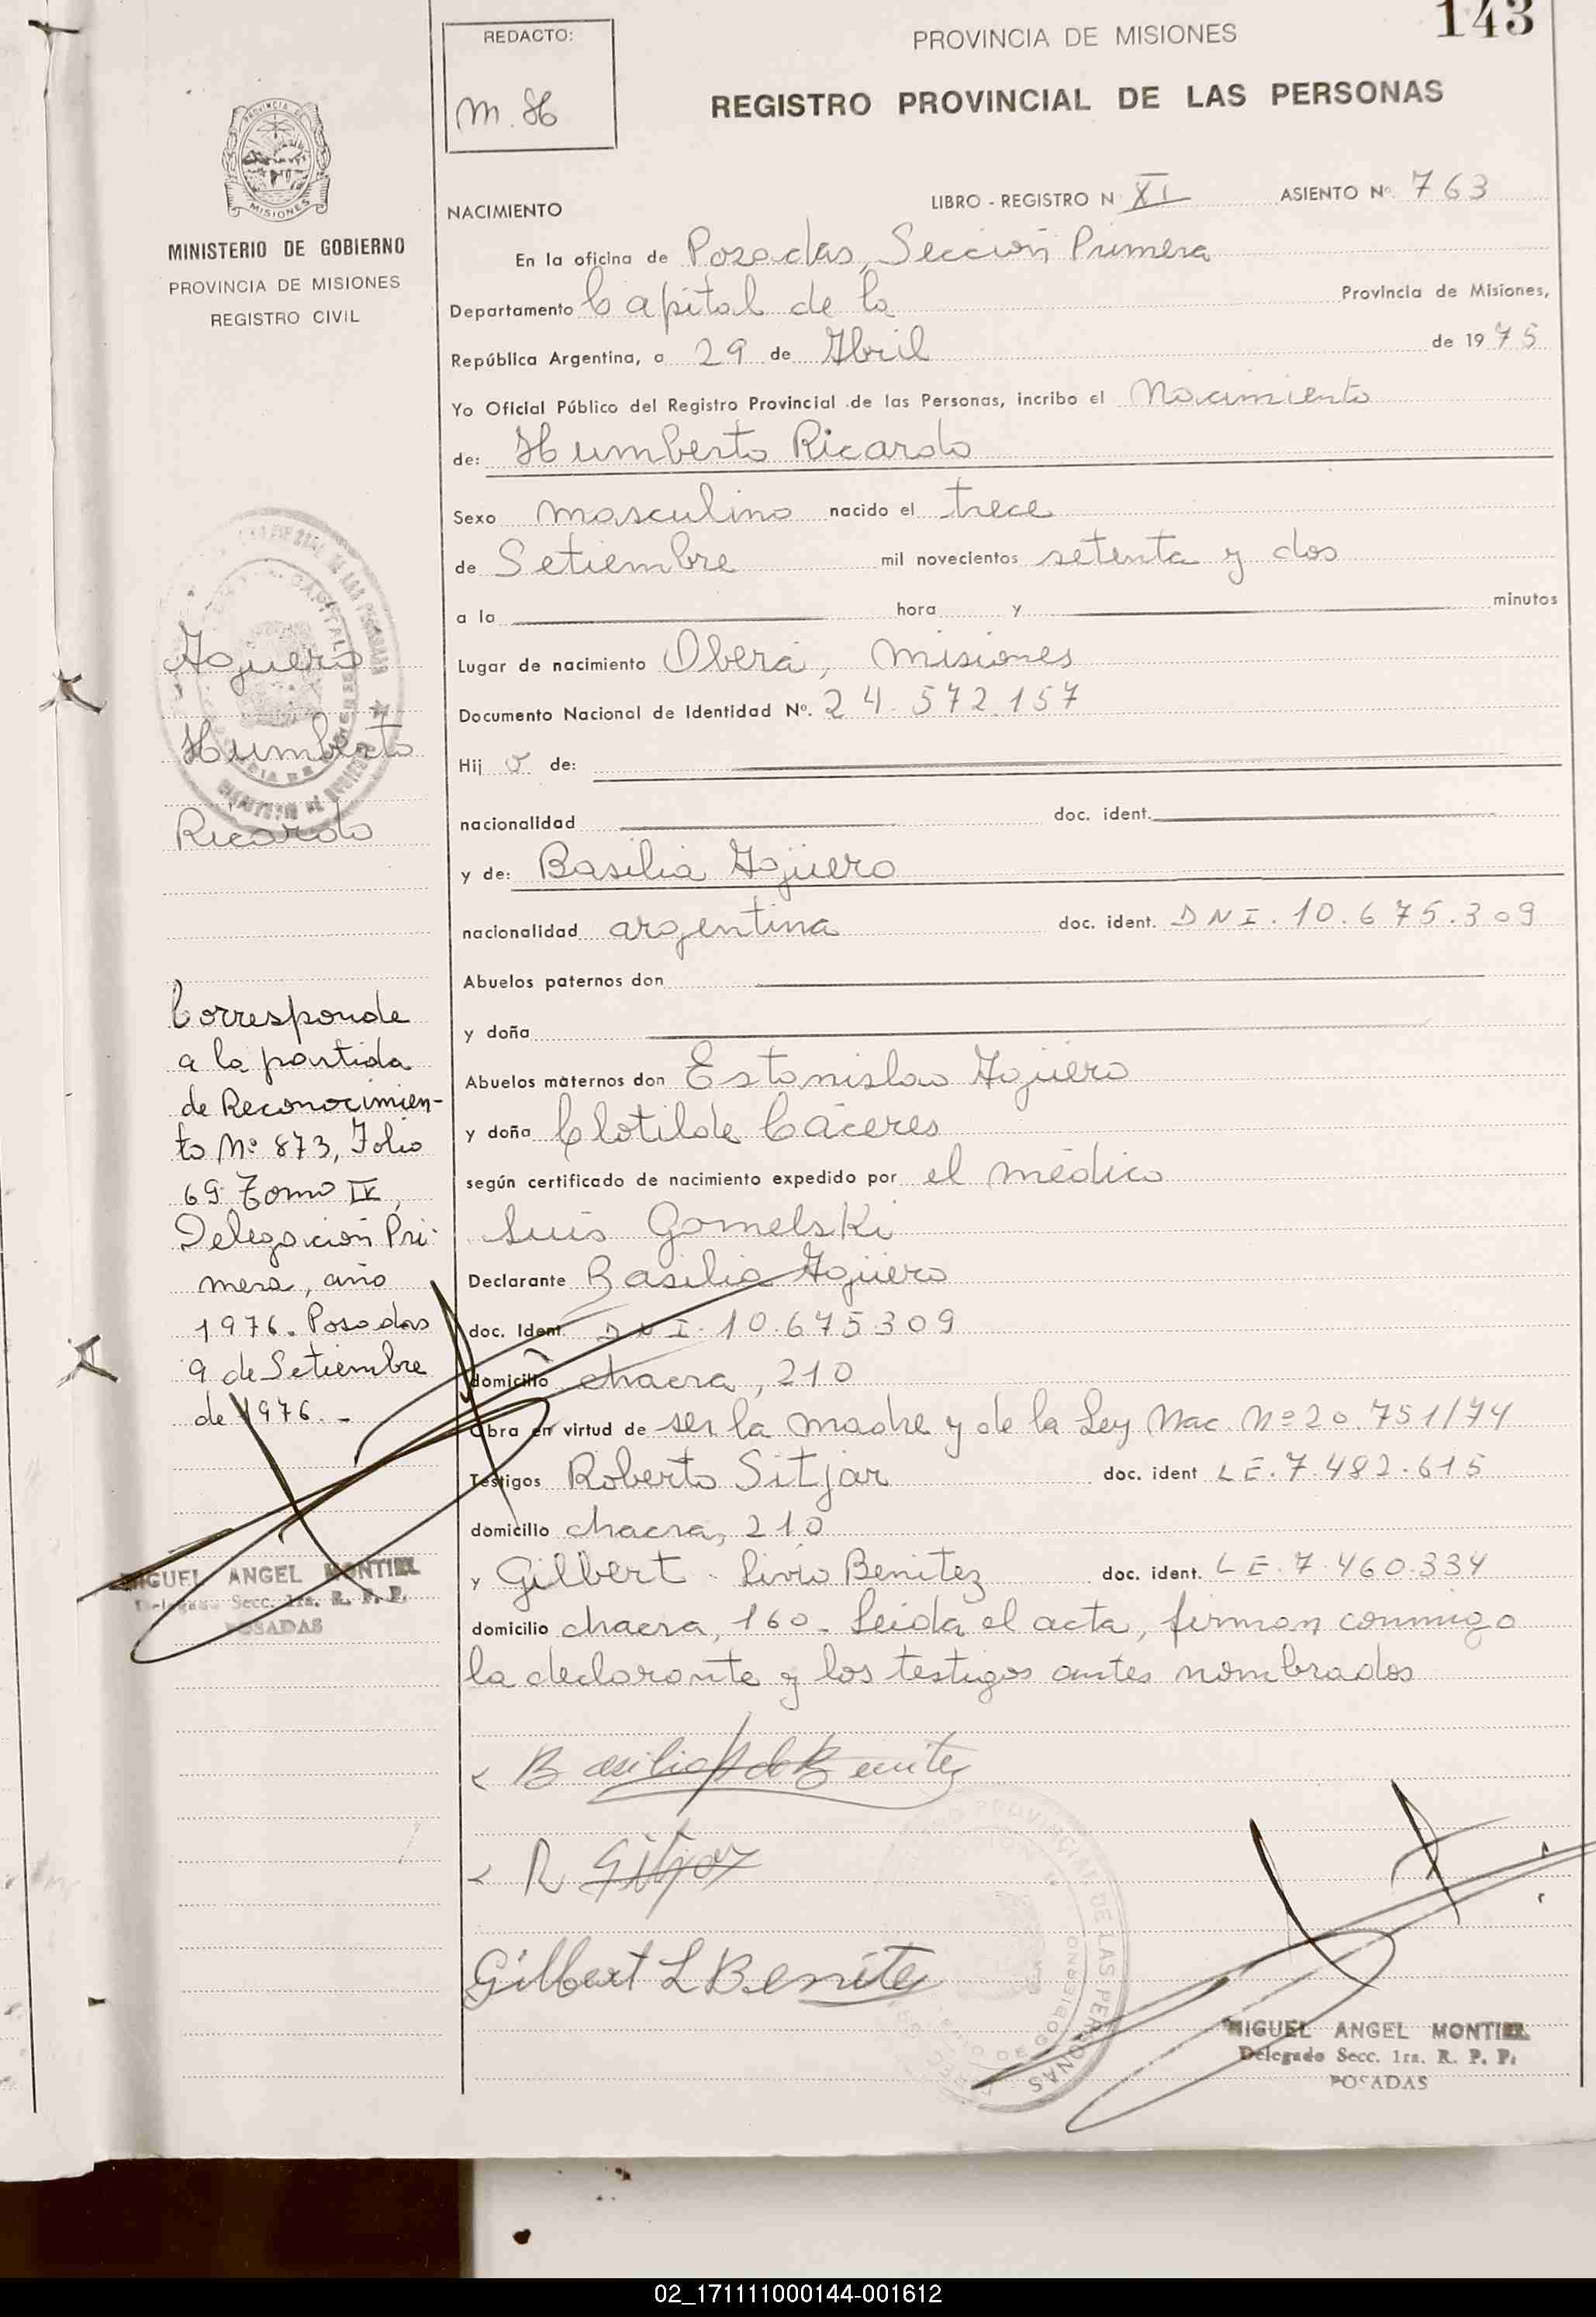 143
REDACTO:
M. H
PROVINCIA DE MISIONES
REGISTRO PROVINCIAL DE LAS PERSONAS
PROVINCIA DE
MISIONES
MINISTERIO DE GOBIERNO
PROVINCIA DE MISIONES
REGISTRO CIVIL
NACIMIENTO
LIBRO - REGISTRO N XI ASIENTO Nº. 763
En la oficina de Posadas, Sección Primera
Departamento Capital de la Provincia de Misiones,
República Argentina, a 29 de Abril de 1975
Yo Oficial Público del Registro Provincial de las Personas, incribo el Nacimiento
de: Humberto Ricardo
Sexo masculino nacido el trece
de Setiembre mil novecientos setenta y dos
a la hora y minutos
Lugar de nacimiento Oberá, Misiones
Documento Nacional de Identidad Nº. 24.572.157
Hij o de:
nacionalidad doc. ident.
y de: Basilia Agüero
nacionalidad argentina doc. ident. DNI. 10.675.309
Abuelos paternos don
y doña
Abuelos maternos don Estanislao Agüero
y doña Clotilde Cáceres
según certificado de nacimiento expedido por el médico
Luis Gomelski
Declarante Basilia Agüero
doc. Ident. DNI. 10.675309
domicilio chacra, 210
Obra en virtud de ser la madre y de la Ley Nac. Nº 20.751/74
Testigos Roberto Sitjar doc. ident LE. 7.482.615
domicilio chacra, 210
y Gilbert Livio Benitez doc. ident. LE. 7.460.334
domicilio chacra, 160. Leida el acta, firman conmigo
la declarante y los testigos antes nombrados
Basilia A de Benitez
R Sitjar
Gilbert L Benitez
MIGUEL ANGEL MONTIEL
Delegado Secc. 1ra. R. P. P.
POSADAS
Agüero
Humberto
Ricardo
Corresponde
a la partida
de Reconocimien-
to Nº 873, Folio
69 Tomo IV,
Delegación Pri-
mera, año
1976. Posadas
9 de Setiembre
de 1976.-
MIGUEL ANGEL MONTIEL
Delegado Secc. 1ra. R. P. P.
POSADAS
02_171111000144-001612